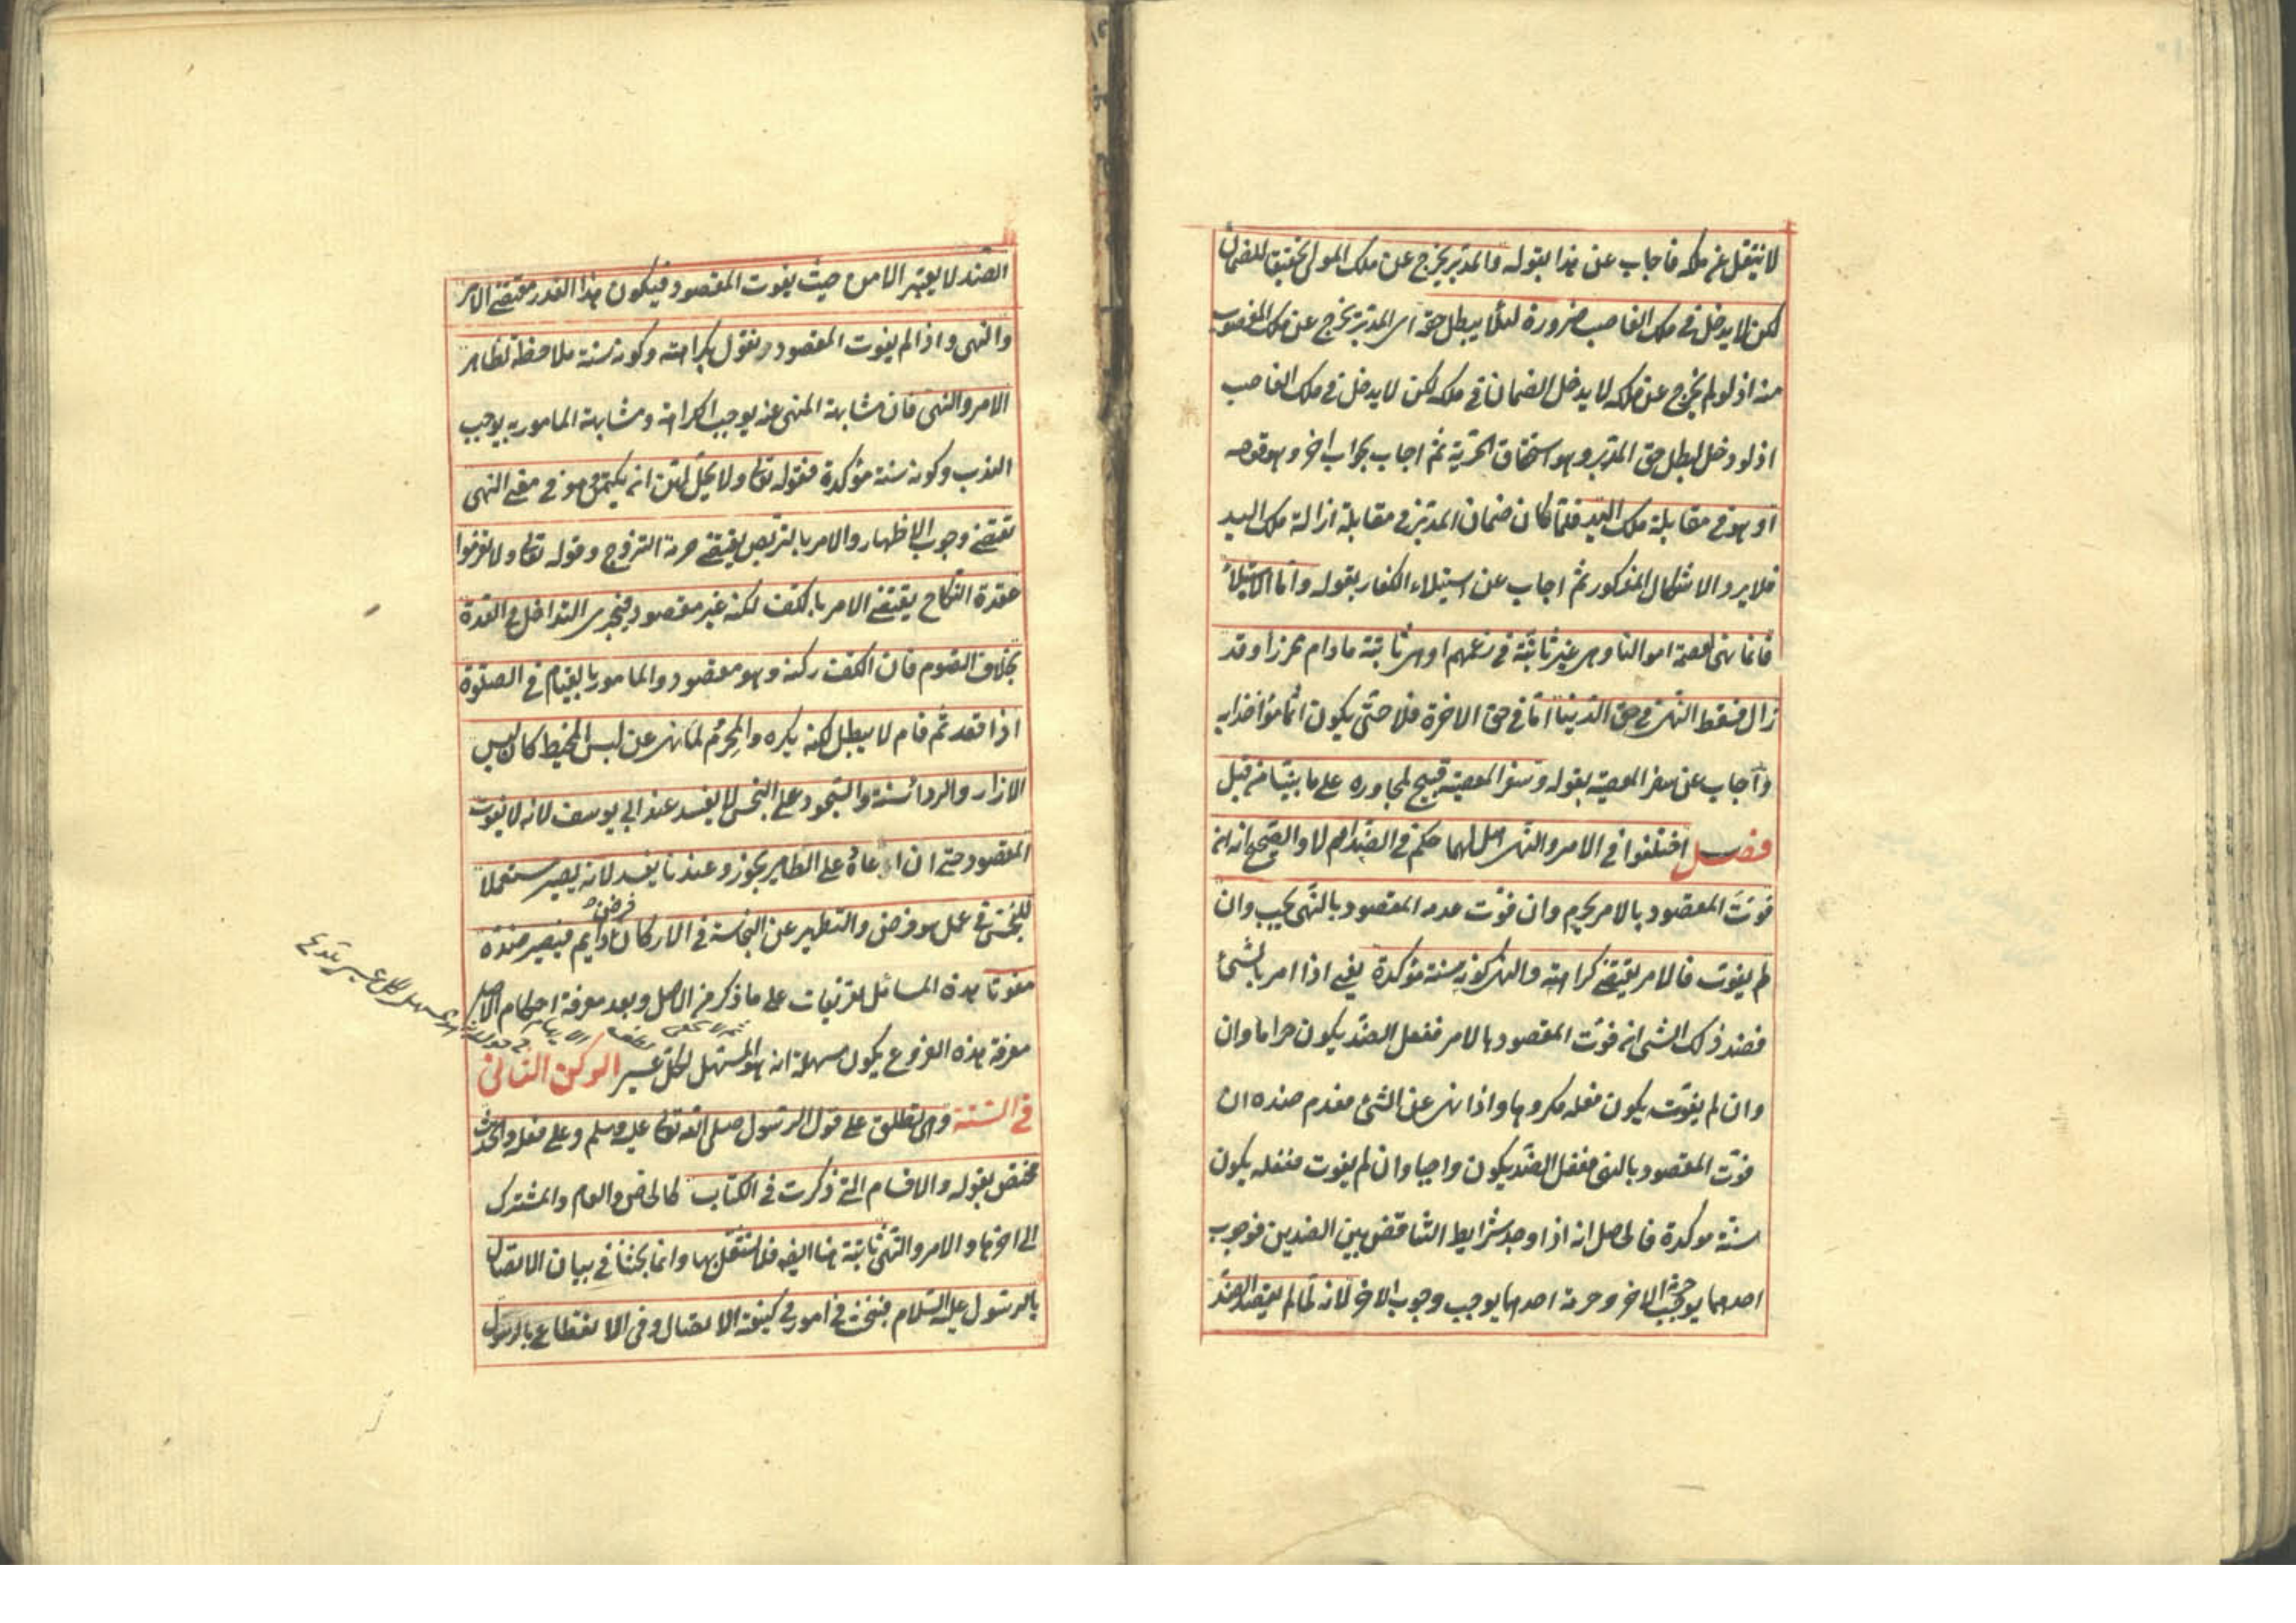 لا ينتقل عن ملكه فاجاب عن هذا بقوله والمدبر يخرج عن ملك المولى تحقيقا للضمان
لكن لا يدخل في ملك الغاصب ضرورة لئلا يبطل حقه اى المدبر يخرج عن ملك المغصوب
منه اذ لو لم يخرج عن ملكه لا يدخل الضمان في ملكه لكن لا يدخل في ملك الغاصب
اذ لو دخل لبطل حق المدبر وهو استحقاق الحرية ثم اجاب بجواب اخر وهو قوله
او هو في مقابلة ملك اليد فلما كان ضمان المدبر في مقابلة ازالة ملك اليد
فلا يرد الاشكال المذكور ثم اجاب عن استيلاء الكفار بقوله واما الاستيلاء
فانما نهى لعصمة اموالنا وهى غير ثابتة في زعمهم او هى ثابتة ما دام محرزا وقد
زال فسقط النهى في حق الدنيا اما في حق الاخرة فلا حتى يكون اثما مؤاخذا به
واجاب عن سفر المعصية بقوله وسفر المعصية قبيح لمجاوره على ما بينا من قبل
فصل اختلفوا في الامر والنهى هل لهما حكم في الضد ام لا والصحيح انه ان
فوت المقصود بالامر يحرم وان فوت عدمه المقصود بالنهى يجب وان
لم يفوت فالامر يقتضى كراهته والنهى كونه سنة مؤكدة يعنى اذا امر بالشئ
فضد ذلك الشئ ان فوت المقصود بالامر ففعل الضد يكون حراما وان
وان لم يفوت يكون فعله مكروها واذا نهى عن الشئ فعدم ضده ان
فوت المقصود بالنهى ففعل الضد يكون واجبا وان لم يفوت ففعله يكون
سنة موكدة فالحاصل انه اذا وجد شرايط التناقض بين الضدين فوجوب
احدهما يوجب حرمة الاخر وحرمة احدهما يوجب وجوب الاخر لانه لما لم يقصد الضد
الضد لا يعتبر الا من حيث يفوت المقصود فيكون هذا القدر مقتضى الامر
والنهى واذا لم يفوت المقصود ونقول بكراهته وكونه سنة ملاحظة لظاهر
الامر والنهى فان مشابهة المنهى عنه يوجب الكراهة ومشابهة المامور به يوجب
الندب وكونه سنة مؤكدة فقوله تعالى ولا يحل لهن ان يكتمن هو في معنى النهى
تقتضى وجوب الاظهار والامر بالتربص يقتضى حرمة التزوج وقوله تعالى ولا تعزموا
عقدة النكاح يقتضى الامر بالكف لكنه غير مقصود فيجرى التداخل في العدة
بخلاف الصوم فان الكف ركنه وهو مقصود والمامور بالقيام في الصلوة
اذا قعد ثم قام لا يبطل لكنه يكره والمحرم لما نهى عن لبس المخيط كان لبس
الازار والرداء سنة والسجود على النجس لا يفسد عند ابى يوسف لانه لا يفوت
المقصود حتى ان اعاد على الطاهر يجوز وعندنا يفسد لانه يصير مستعملا
للنجس في عمل هو فرض والتطهير عن النجاسة في الاركان فرض دايم فيصير ضده
مفوتا هذه المسائل تفريعات على ما ذكر من الاصل وبعد معرفة احكام الاصل
معرفة هذه الفروع يكون سهلة انه هو المسهل لكل عسير الركن الثانى
في السنة وهى تطلق على قول الرسول صلى الله تعالى عليه وسلم وعلى فعله والحديث
مختص بقوله والاقسام التى ذكرت في الكتاب كالخاص والعام والمشترك
الى اخرها والامر والنهى ثابتة هنا ايضا فلا نشتغل بها وانما بحثنا في بيان الاتصال
بالرسول عليه السلام فبحث في امور في كيفية الاتصال وفى الانقطاع بالرسول